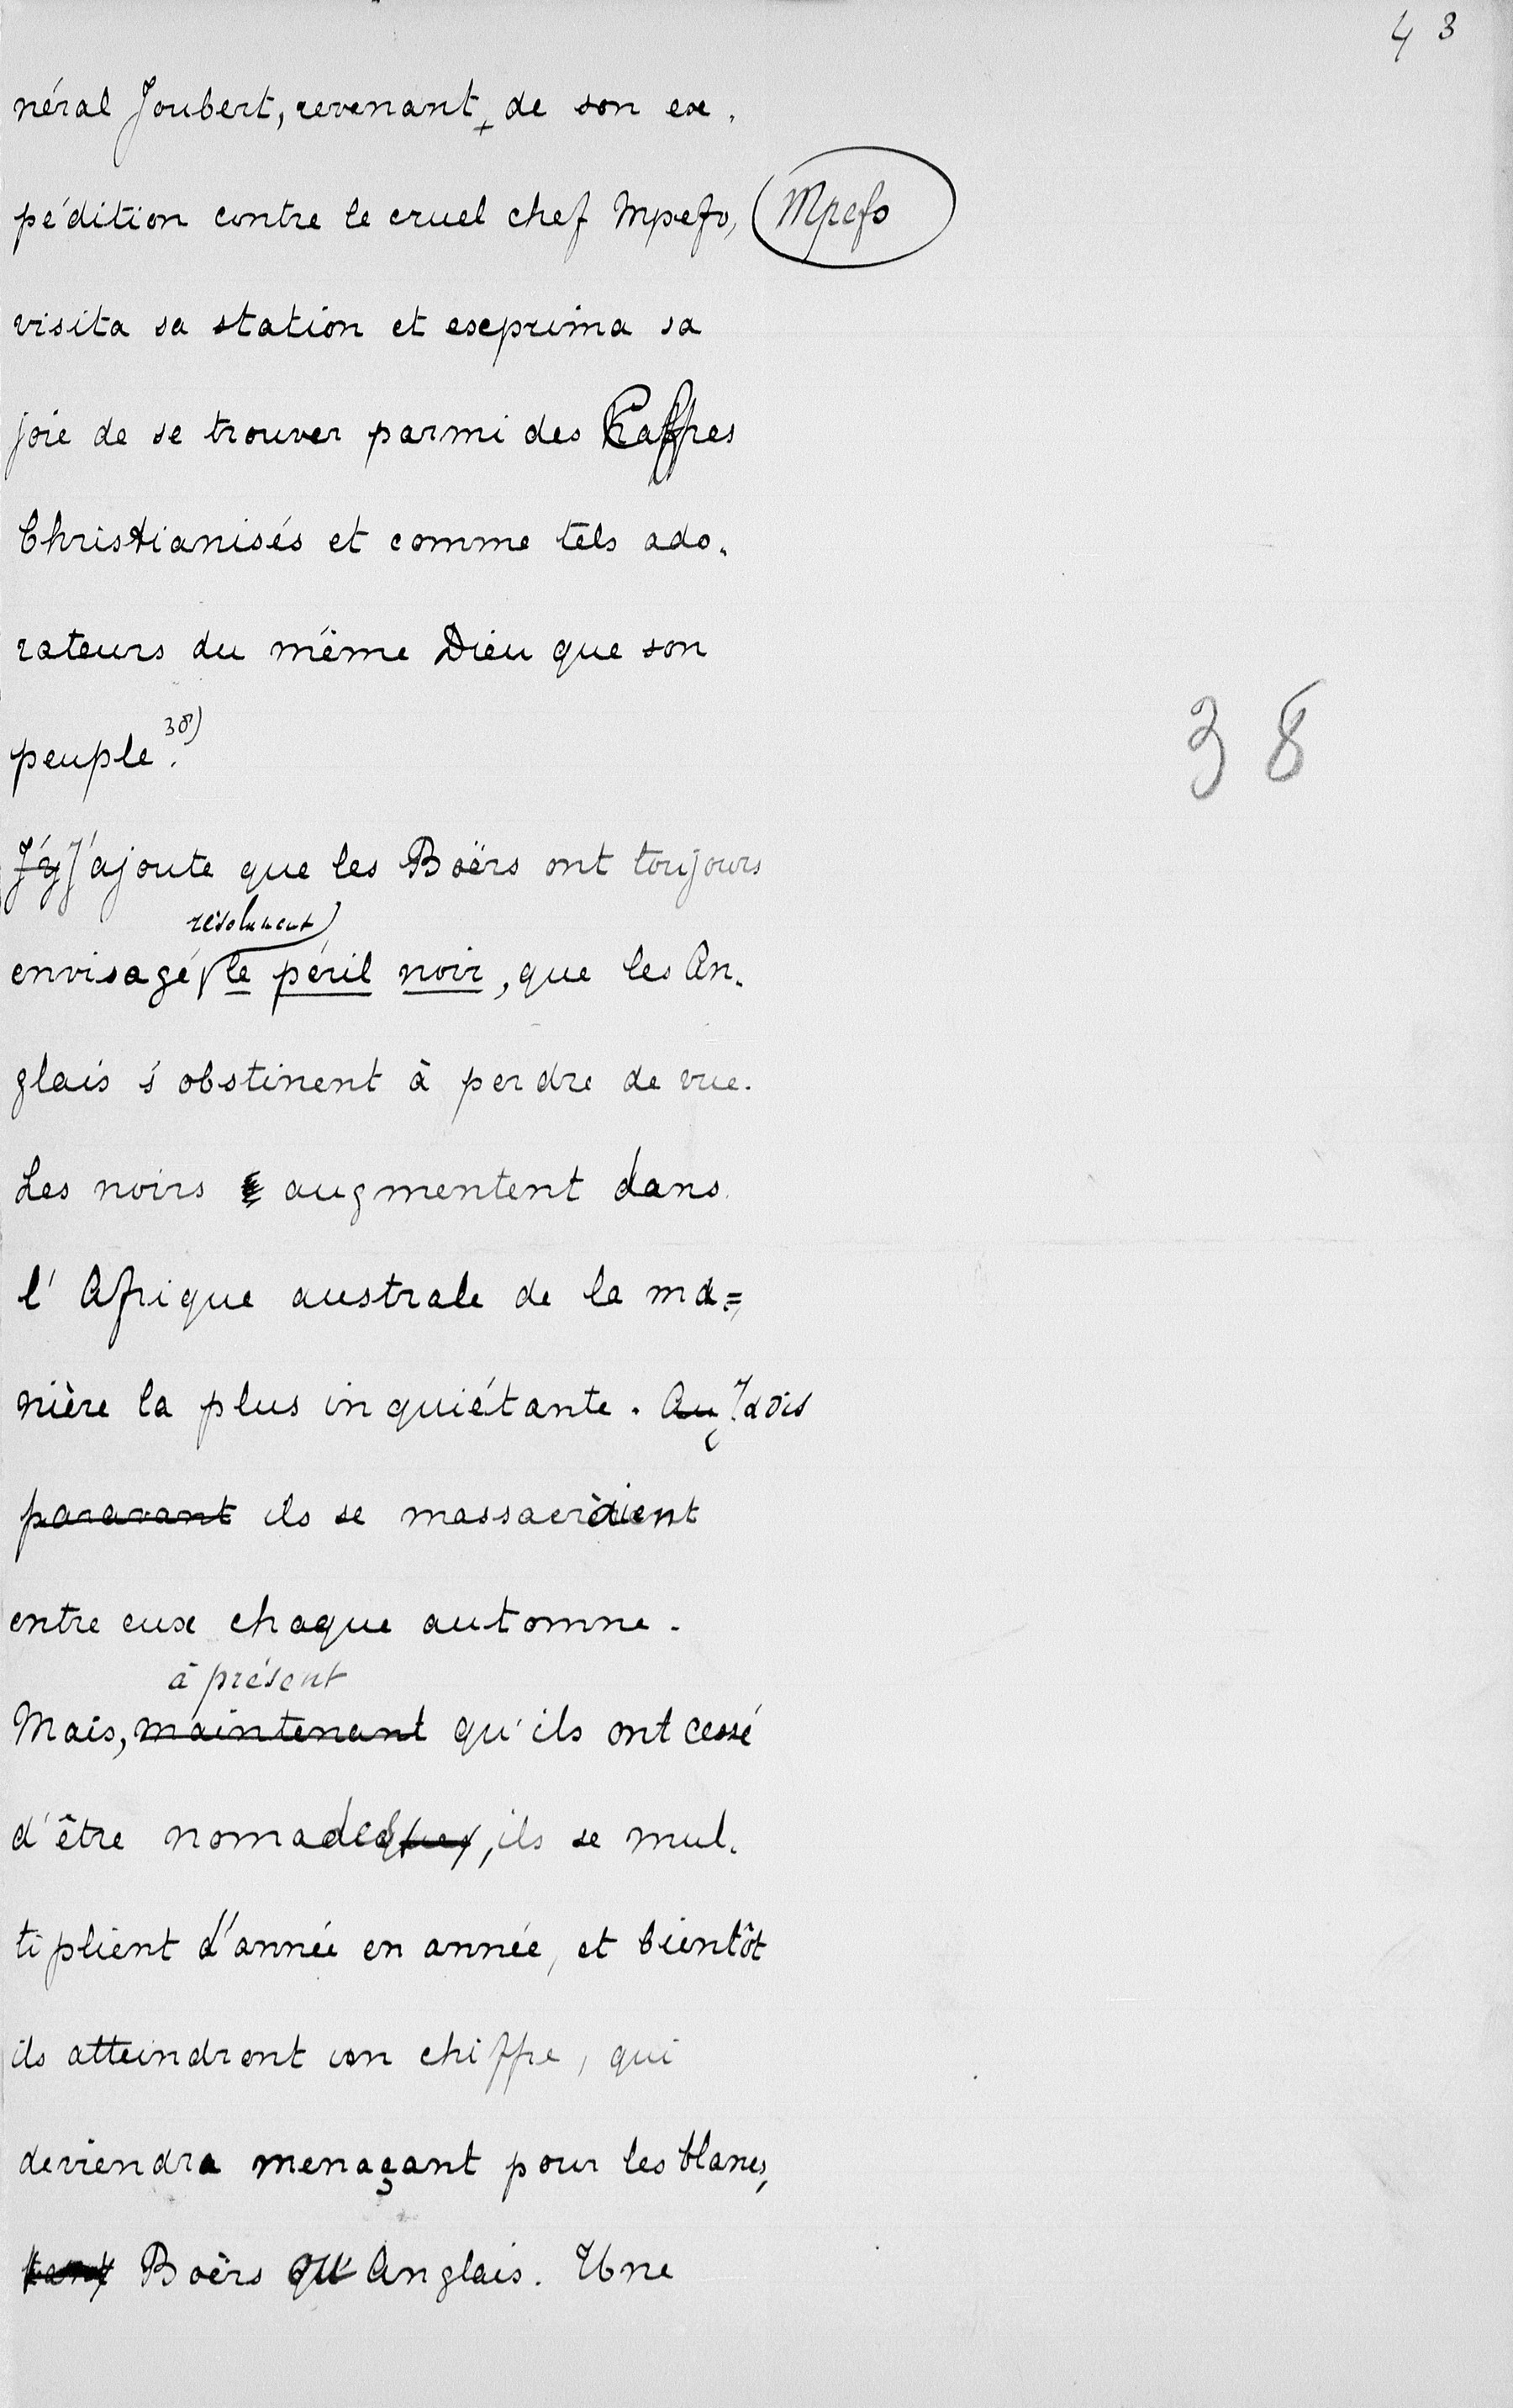 43
néral Joubert, revenant de son ex-
pédition contre le cruel chef Mpefo, Mpefo
visita sa station et exprima sa
joie de se trouver parmi des Caffres
Christianisés et comme tels ado-
rateurs du même Dieu que son
peuple. 38)
38
J'y J'ajoute que les Boërs ont toujours
résolument
envisagé le péril noir, que les An-
glais s'obstinent à perdre de vue.
Les noirs augmentent dans
l'Afrique australe de la ma=
nière la plus inquiétante. Au
paravant ils se massacraient
entre eux chaque automne.
à présent
Mais, maintenant qu'ils ont cessé
d'être nomades, ils se mul-
tiplient d'année en année, et bientôt
ils atteindront un chiffre, qui
deviendra menaçant pour les blancs,
tant Boërs qu'Anglais. Une